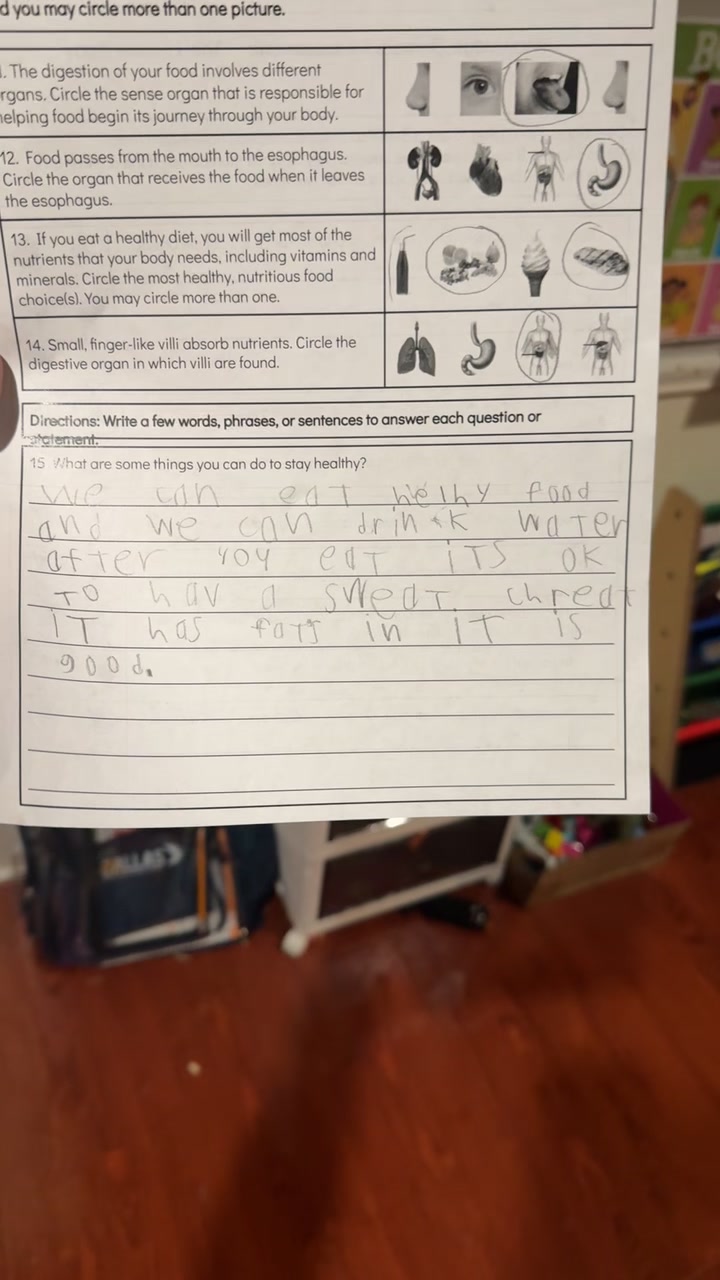 d you may circle more than one picture.
. The digestion of your food involves different
rgans. Circle the sense organ that is responsible for
helping food begin its journey through your body.
12. Food passes from the mouth to the esophagus.
Circle the organ that receives the food when it leaves
the esophagus.
13. If you eat a healthy diet, you will get most of the
nutrients that your body needs, including vitamins and
minerals. Circle the most healthy, nutritious food
choice(s). You may circle more than one.
14. Small, finger-like villi absorb nutrients. Circle the
digestive organ in which villi are found.
Directions: Write a few words, phrases, or sentences to answer each question or
statement.
15 What are some things you can do to stay healthy?
We can eat helhy food
and we can drink water
after you eat iTS ok
To hav a sweat chreat
IT has fats in IT is
good.